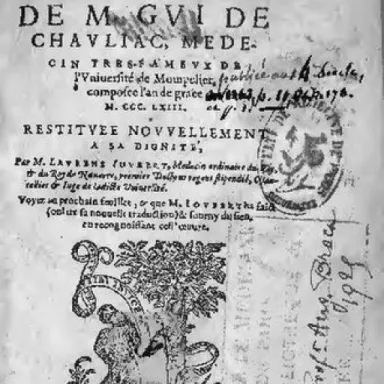 DE M. GVI DE
CHAVLIAC, MEDE-
CIN TRES-FAMEVX DE
l'Vniuersité de Montpelier,
composée l'an de grace
M. CCC. LXIII.
RESTITVEE NOVVELLEMENT
A SA DIGNITÉ,
Par M. LAVRENS IOVBERT, Medecin ordinaire du Roy,
& du Roy de Nauarre, premier Docteur regent stipendié, Chan-
cellier & Iuge de ladicte Vniuersité.
Voyez au prochain feuillet, ce que M. IOVBERT ha faict
(outre sa nouuelle traduction) & fourny du sien,
en recognoissant cest œuure.
Prof. Aug. Bracq
1925